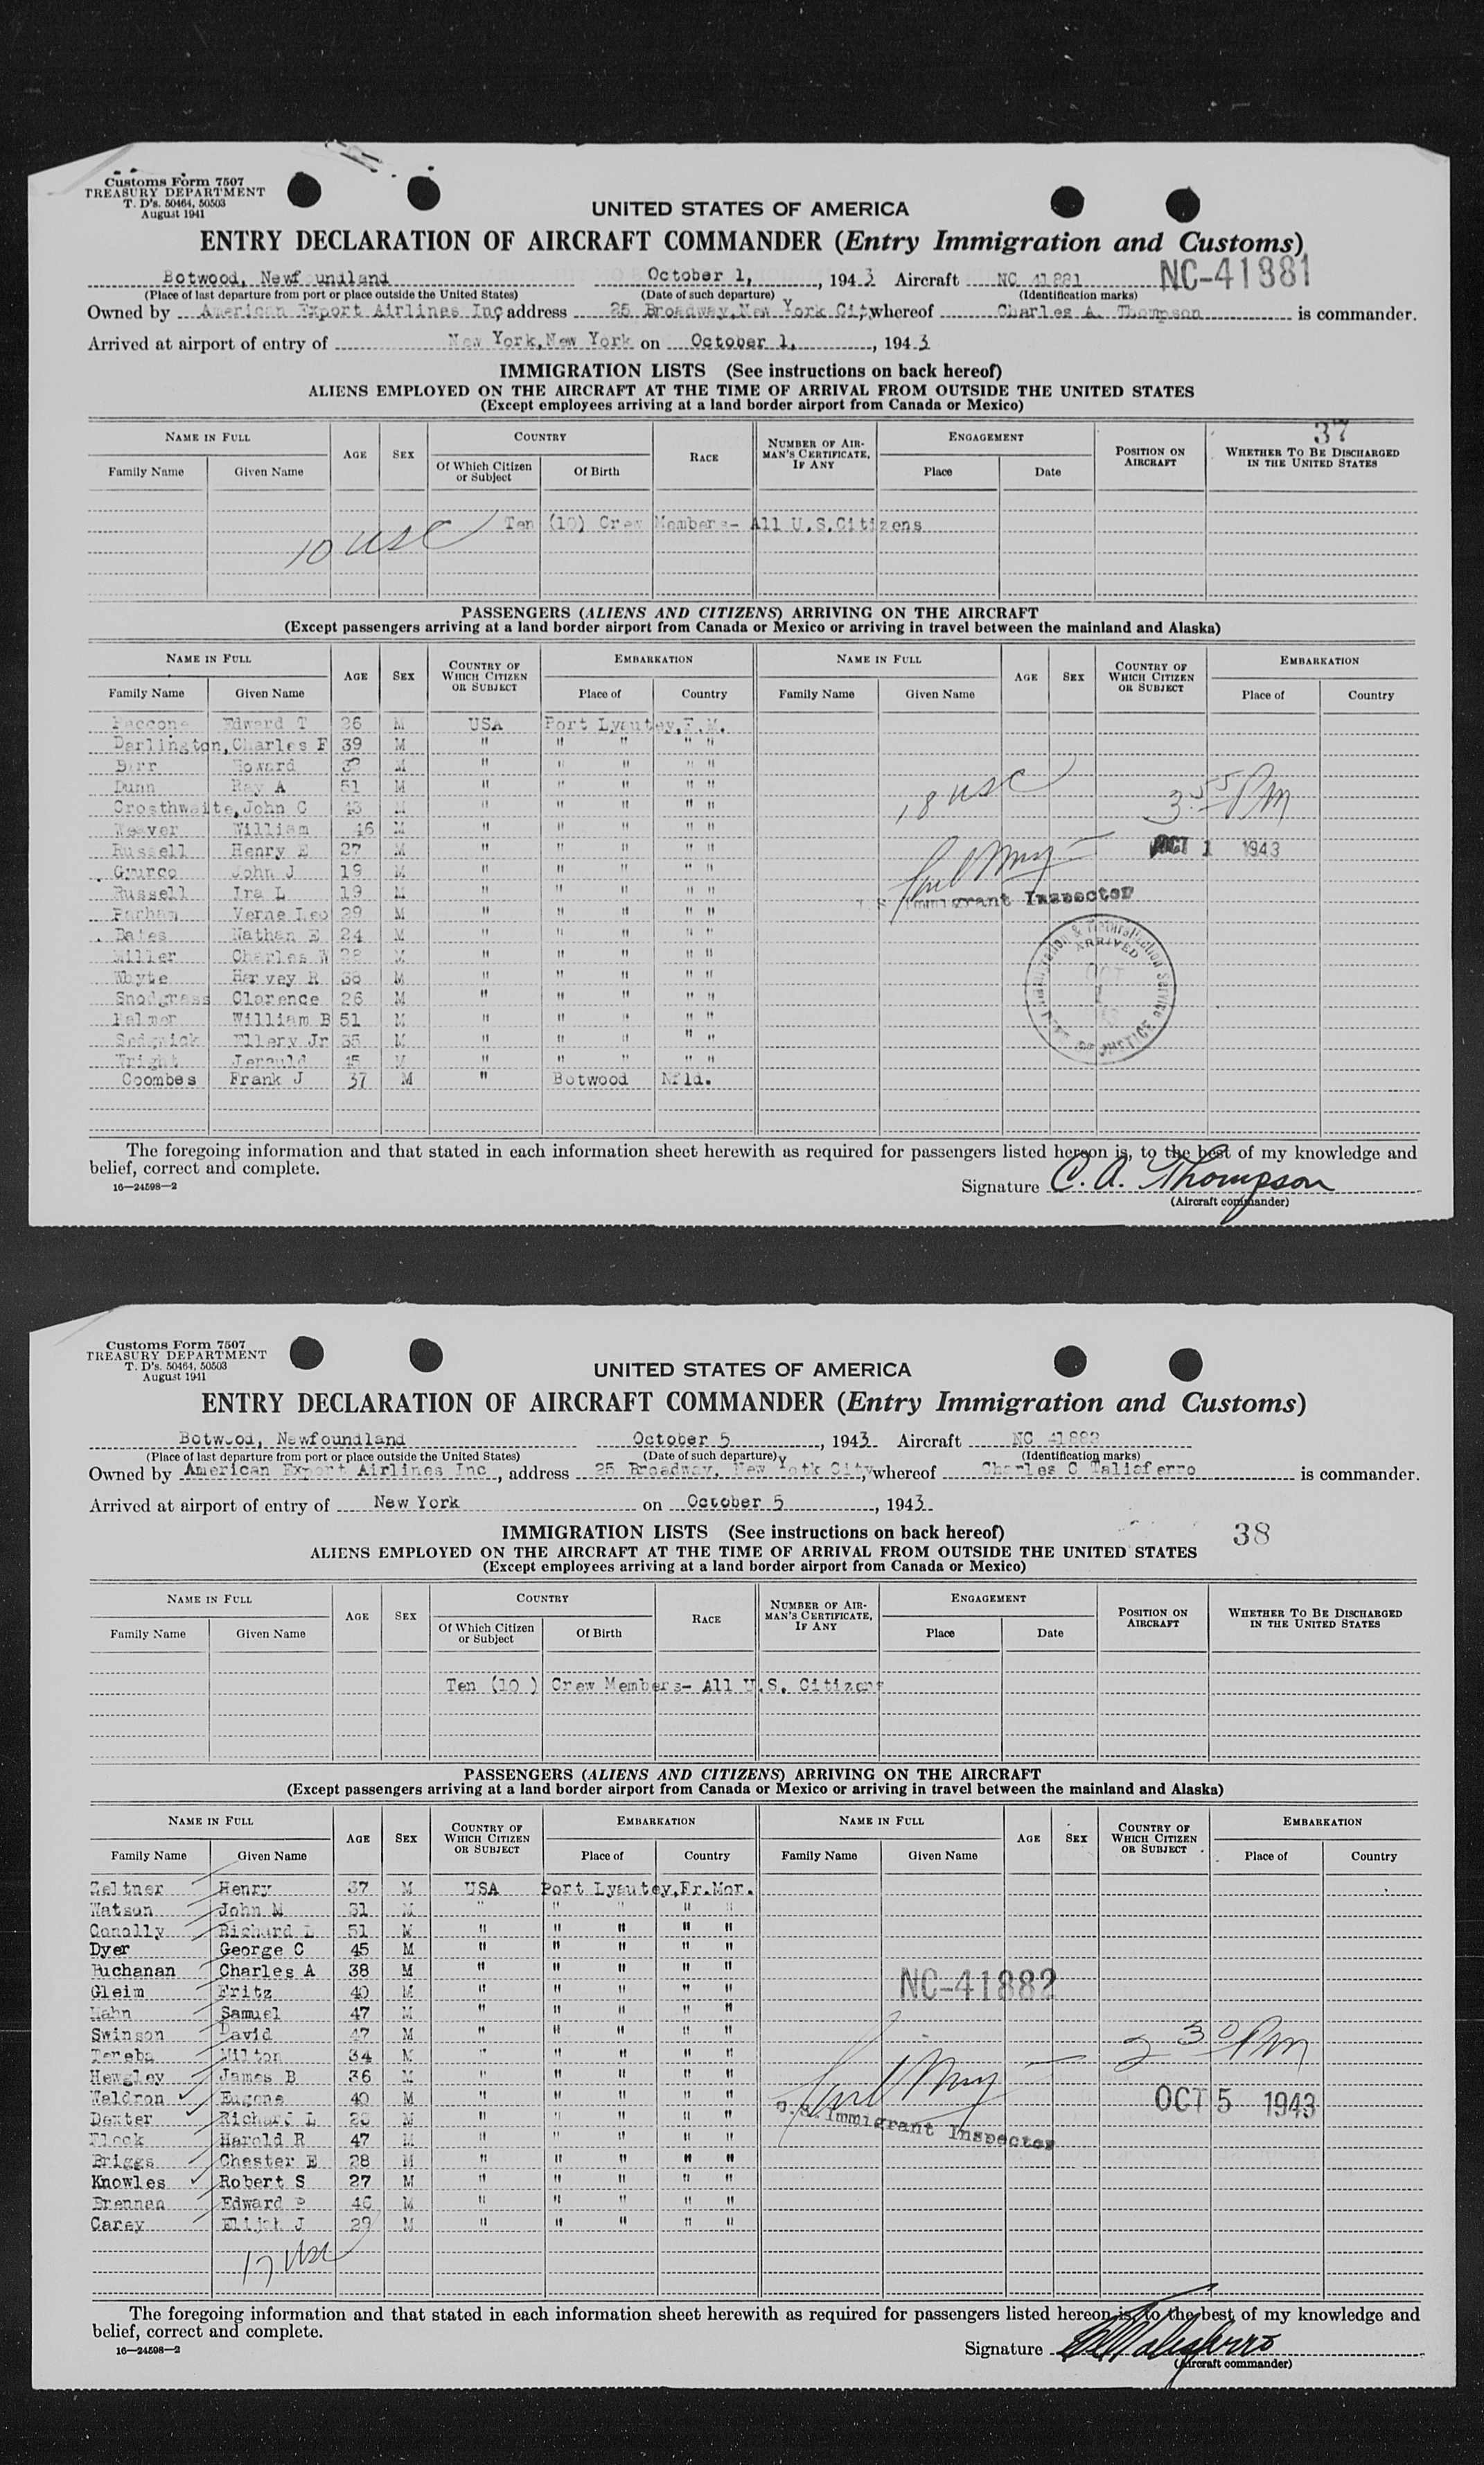 Customs Form 7507
TREASURY DEPARTMENT
T. D's. 50464, 50503
August 1941
UNITED STATES OF AMERICA
ENTRY DECLARATION OF AIRCRAFT COMMANDER (Entry Immigration and Customs)
Botwood, Newfoundland October 1, , 1943 Aircraft NC 41881 NC-41881
(Place of last departure from port or place outside the United States) (Date of such departure) (Identification marks)
Owned by American Export Airlines Inc, address 25 Broadway, New York City, whereof Charles A. Thompson is commander.
Arrived at airport of entry of New York, New York on October 1, , 1943
IMMIGRATION LISTS (See instructions on back hereof)
ALIENS EMPLOYED ON THE AIRCRAFT AT THE TIME OF ARRIVAL FROM OUTSIDE THE UNITED STATES
(Except employees arriving at a land border airport from Canada or Mexico)
37
NAME IN FULL AGE SEX COUNTRY RACE NUMBER OF AIRMAN'S CERTIFICATE, IF ANY ENGAGEMENT POSITION ON AIRCRAFT WHETHER TO BE DISCHARGED IN THE UNITED STATES
Family Name Given Name Of Which Citizen or Subject Of Birth Place Date
Ten (10) Crew Members- All U.S.Citizens
10 USC
PASSENGERS (ALIENS AND CITIZENS) ARRIVING ON THE AIRCRAFT
(Except passengers arriving at a land border airport from Canada or Mexico or arriving in travel between the mainland and Alaska)
NAME IN FULL AGE SEX COUNTRY OF WHICH CITIZEN OR SUBJECT EMBARKATION NAME IN FULL AGE SEX COUNTRY OF WHICH CITIZEN OR SUBJECT EMBARKATION
Family Name Given Name Place of Country Family Name Given Name Place of Country
Edward T 26 M USA Port Lyautey, F.M.
Darlington, Charles F 39 M " " " " "
Howard M " " " " "
Dunn Ray A 51 M " " " " "
Crosthwaite, John C 43 M " " " " "
Weaver William 46 M " " " " "
Russell Henry E 27 M " " " " "
John J 19 M " " " " "
Russell Ira L 19 M " " " " "
Verne Leo 29 M " " " " "
Bates Nathan E 24 M " " " " "
Miller Charles W 28 M " " " " "
Whyte Harvey R 38 M " " " " "
Snodgrass Clarence 26 M " " " " "
Palmer William B 51 M " " " " "
Sedgwick Ellery Jr 35 M " " " " "
Wright Jerauld 45 M " " " " "
Coombes Frank J 37 M " Botwood Nfld.
18 USC
3 55 PM
OCT 1 1943
U.S. Immigrant Inspector
Immigration & Naturalization Service
ARRIVED
OCT
1
OF JUSTICE
The foregoing information and that stated in each information sheet herewith as required for passengers listed hereon is, to the best of my knowledge and
belief, correct and complete.
16—24598—2
Signature C. A. Thompson
(Aircraft commander)
Customs Form 7507
TREASURY DEPARTMENT
T. D's. 50464, 50503
August 1941
UNITED STATES OF AMERICA
ENTRY DECLARATION OF AIRCRAFT COMMANDER (Entry Immigration and Customs)
Botwood, Newfoundland October 5 , 1943 Aircraft NC 41882
(Place of last departure from port or place outside the United States) (Date of such departure) (Identification marks)
Owned by American Export Airlines Inc , address 25 Broadway, New York City, whereof Charles C Taliaferro is commander.
Arrived at airport of entry of New York on October 5 , 1943
IMMIGRATION LISTS (See instructions on back hereof)
38
ALIENS EMPLOYED ON THE AIRCRAFT AT THE TIME OF ARRIVAL FROM OUTSIDE THE UNITED STATES
(Except employees arriving at a land border airport from Canada or Mexico)
NAME IN FULL AGE SEX COUNTRY RACE NUMBER OF AIRMAN'S CERTIFICATE, IF ANY ENGAGEMENT POSITION ON AIRCRAFT WHETHER TO BE DISCHARGED IN THE UNITED STATES
Family Name Given Name Of Which Citizen or Subject Of Birth Place Date
Ten (10 ) Crew Members- All U.S. Citizens
PASSENGERS (ALIENS AND CITIZENS) ARRIVING ON THE AIRCRAFT
(Except passengers arriving at a land border airport from Canada or Mexico or arriving in travel between the mainland and Alaska)
NAME IN FULL AGE SEX COUNTRY OF WHICH CITIZEN OR SUBJECT EMBARKATION NAME IN FULL AGE SEX COUNTRY OF WHICH CITIZEN OR SUBJECT EMBARKATION
Family Name Given Name Place of Country Family Name Given Name Place of Country
Zeltner Henry 37 M USA Port Lyautey, Fr.Mor.
Watson John M 31 M " " " " "
Conolly Richard L 51 M " " " " "
Dyer George C 45 M " " " " "
Buchanan Charles A 38 M " " " " "
Gleim Fritz 40 M " " " " "
Hahn Samuel 47 M " " " " "
Swinson David 47 M " " " " "
Tereba Milton 34 M " " " " "
Hewgley James B 36 M " " " " "
Waldron Eugene 40 M " " " " "
Dexter Richard L M " " " " "
Fleck Harold R 47 M " " " " "
Briggs Chester E 28 M " " " " "
Knowles Robert S 27 M " " " " "
Brennan Edward P 46 M " " " " "
Carey Elijah J 29 M " " " " "
17 USC
NC-41882
2 30 PM
OCT 5 1943
U.S. Immigrant Inspector
The foregoing information and that stated in each information sheet herewith as required for passengers listed hereon is, to the best of my knowledge and
belief, correct and complete.
16—24598—2
Signature
(Aircraft commander)